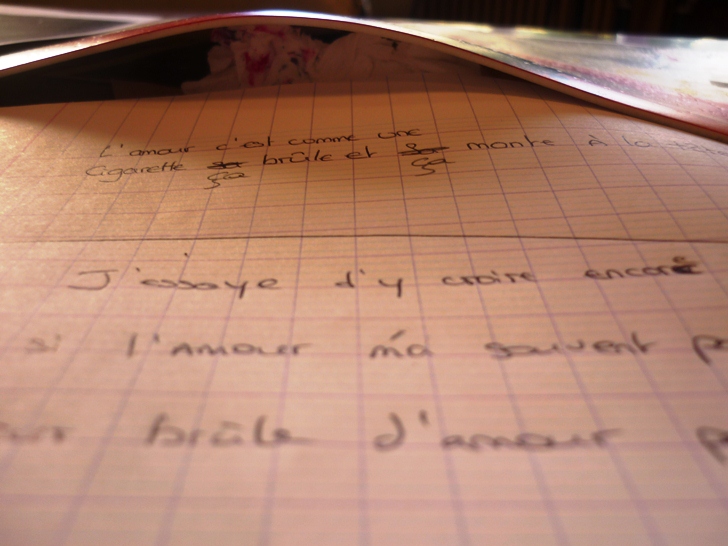 L'amour c'est comme une
Cigarette ça brûle et ça monte à la
J'essaye d'y croire encore
si l'amour m'a souvent
brûle d'amour